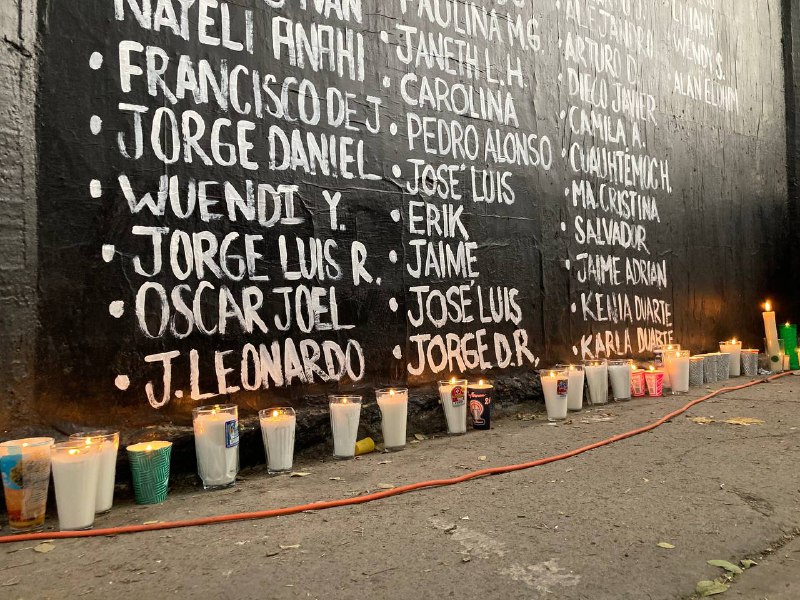 NAYELI ANAHI
• FRANCISCO DE J
• JORGE DANIEL
• WUENDI Y.
• JORGE LUIS R.
• OSCAR JOEL
• J. LEONARDO
PAULINA M.G.
• JANETH L.H.
• CAROLINA
• PEDRO ALONSO
• JOSÉ LUIS
• ERIK
• JAIME
• JOSÉ LUIS
• JORGE D.R.
ALEJANDRO
• ARTURO D.
• DIEGO JAVIER
• CAMILA A.
• CUAUHTÉMOC H.
• MA. CRISTINA
• SALVADOR
• JAIME ADRIAN
• KENIA DUARTE
• KARLA DUARTE
LILIANA
WENDY S.